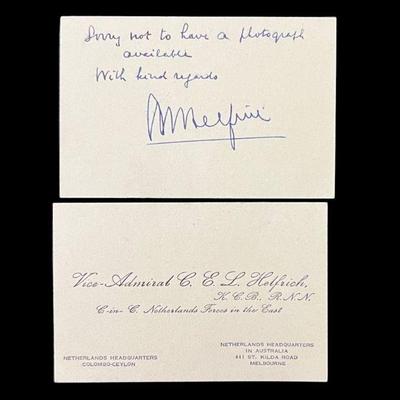 Sorry not to have a photograph
available
With kind regards
Helfrich
Vice-Admiral C. E. L. Helfrich,
K. C. B. R. N. N.
C-in-C. Netherlands Forces in the East
NETHERLANDS HEADQUARTERS
COLOMBO-CEYLON
NETHERLANDS HEADQUARTERS
IN AUSTRALIA
411 ST. KILDA ROAD
MELBOURNE